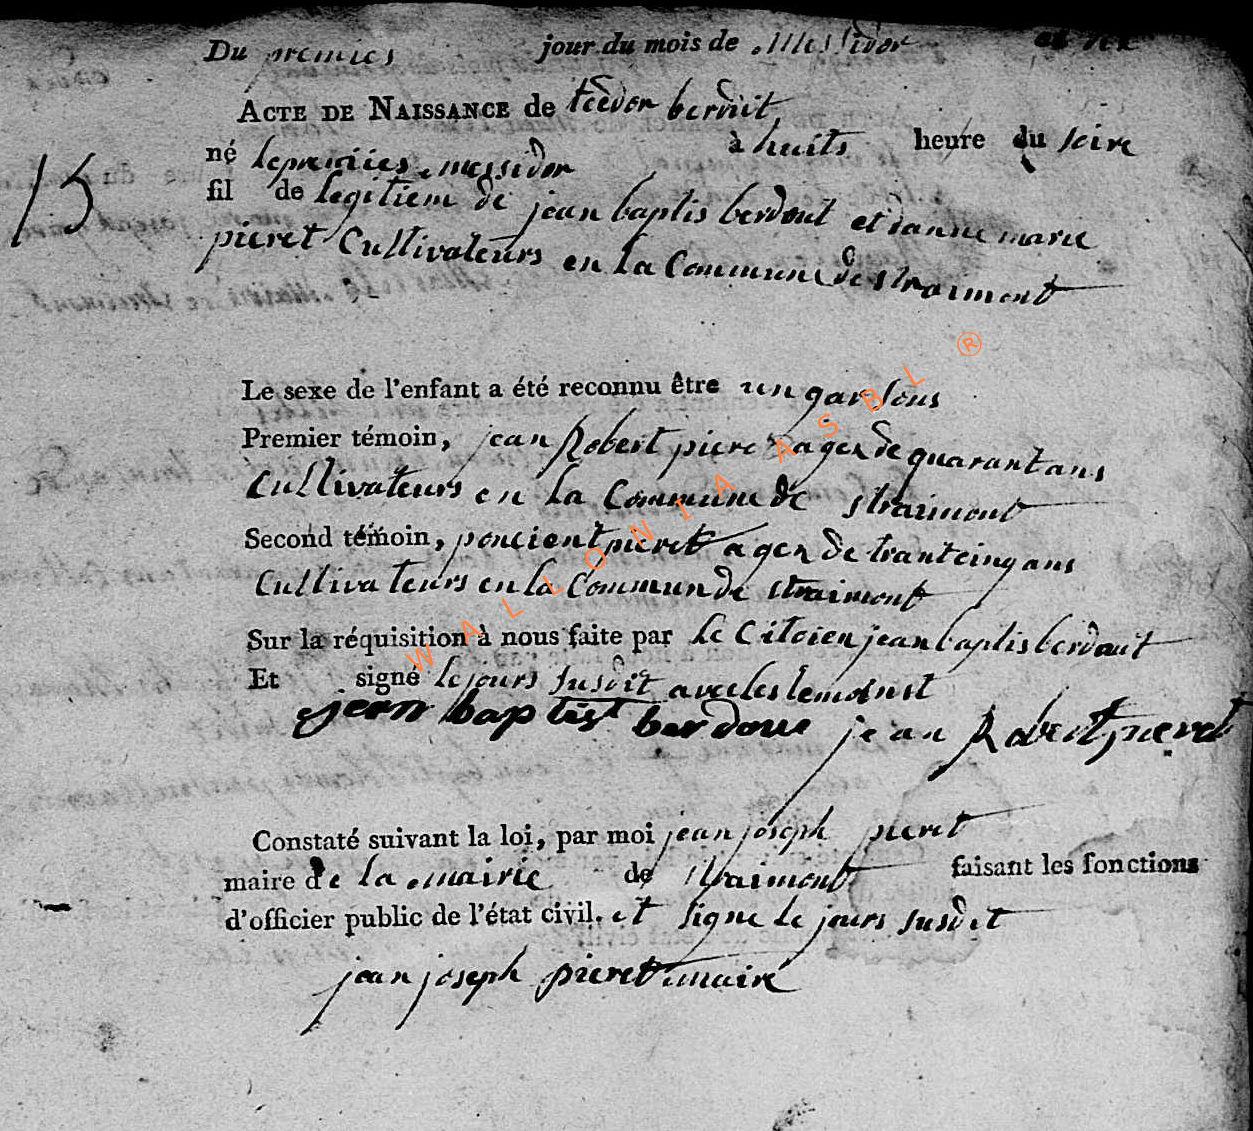 Du premies jour du mois de Messidor an dix
ACTE DE NAISSANCE de téèdor berduit
né le premiies messidor à huits heure du soire
fil de legitiem de jean baptis berdout et danne marie
pieret Cultivateurs en la Commune de straimont
15
Le sexe de l'enfant a été reconnu être un garsons
Premier témoin, jean Robert pieret agex de quarant ans
Cultivateurs en la Commune de straimont
Second témoin, poncient pieret agex de trant cinq ans
Cultivateurs en la Commun de straimont
Sur la réquisition à nous faite par le Citoien jean baptis berdout
Et signé le jours susdit avec les temoinst
jean baptist berdoue jean Robert pieret
Constaté suivant la loi, par moi jean joseph pieret
maire de la mairie de straimont faisant les fonctions
d'officier public de l'état civil. et signe le jours susdit
jean joseph pieret maire
WALLONIA ASBL ®